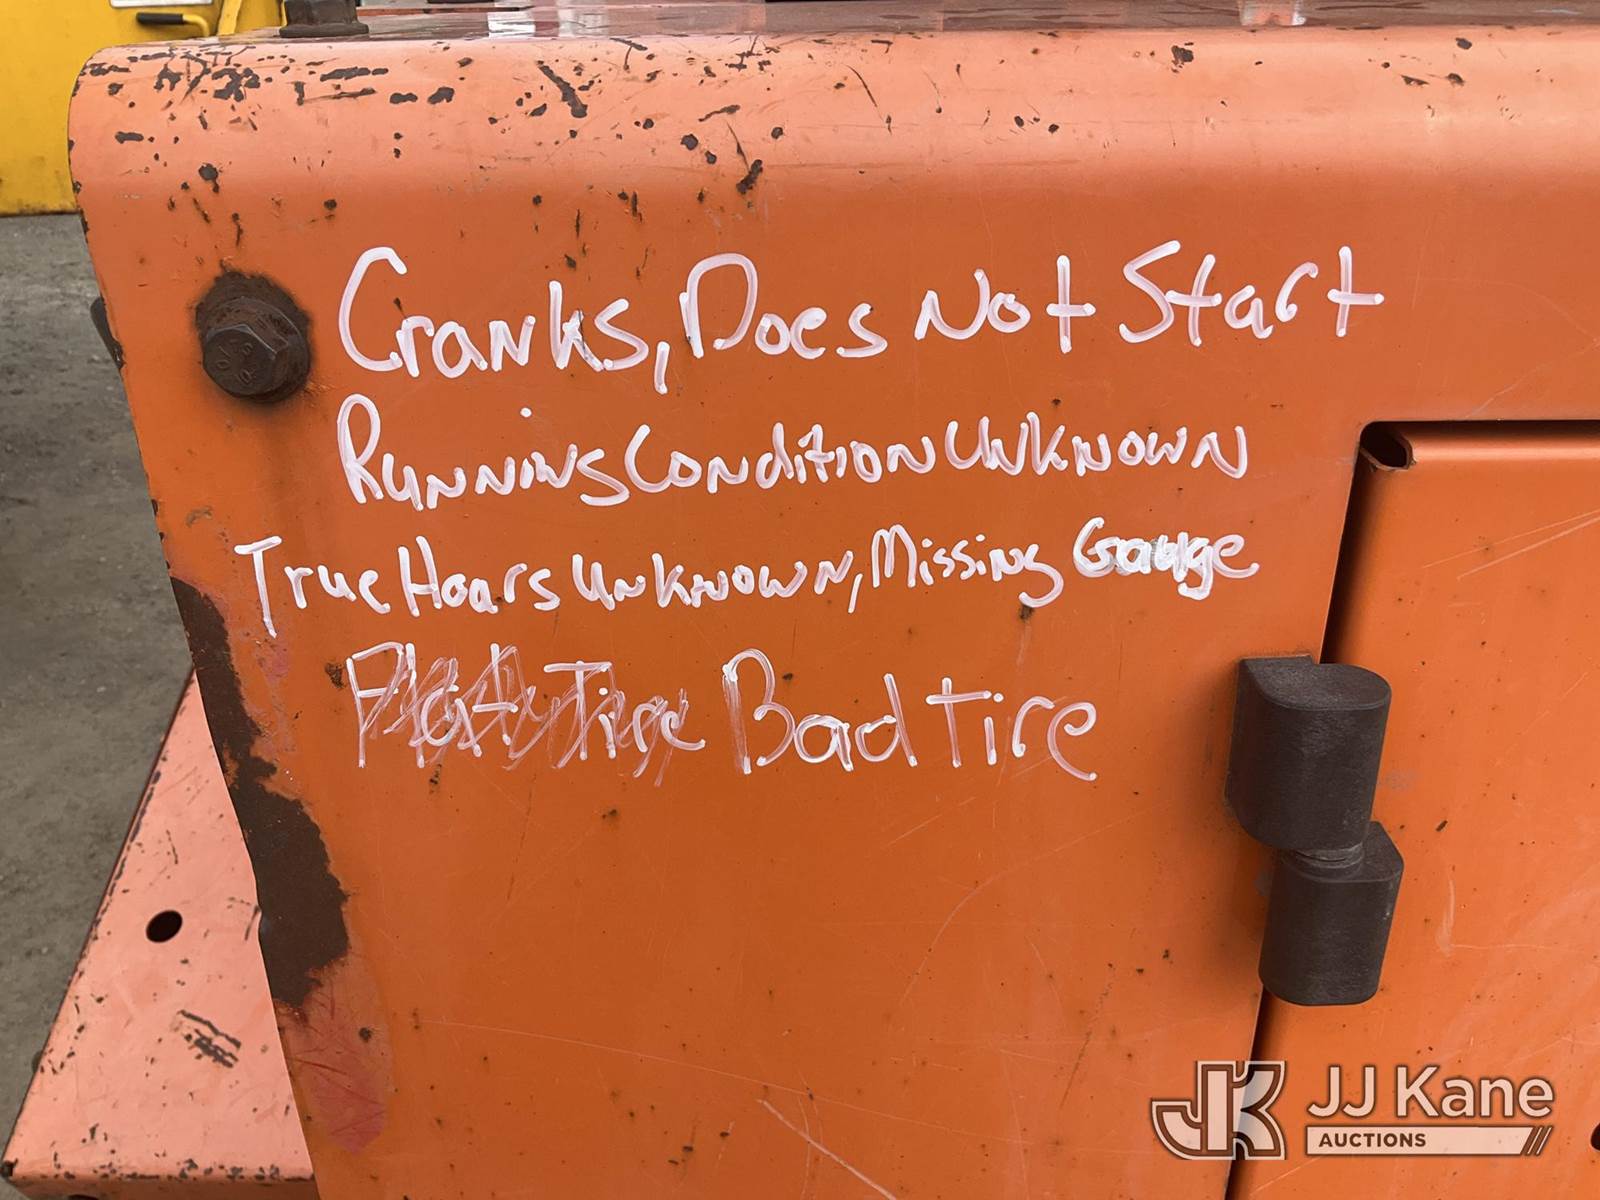 Cranks, Does Not Start
Running Condition Unknown
True Hours Unknown, Missing Gauge
Flat Tire Bad Tire
JK JJ Kane
AUCTIONS